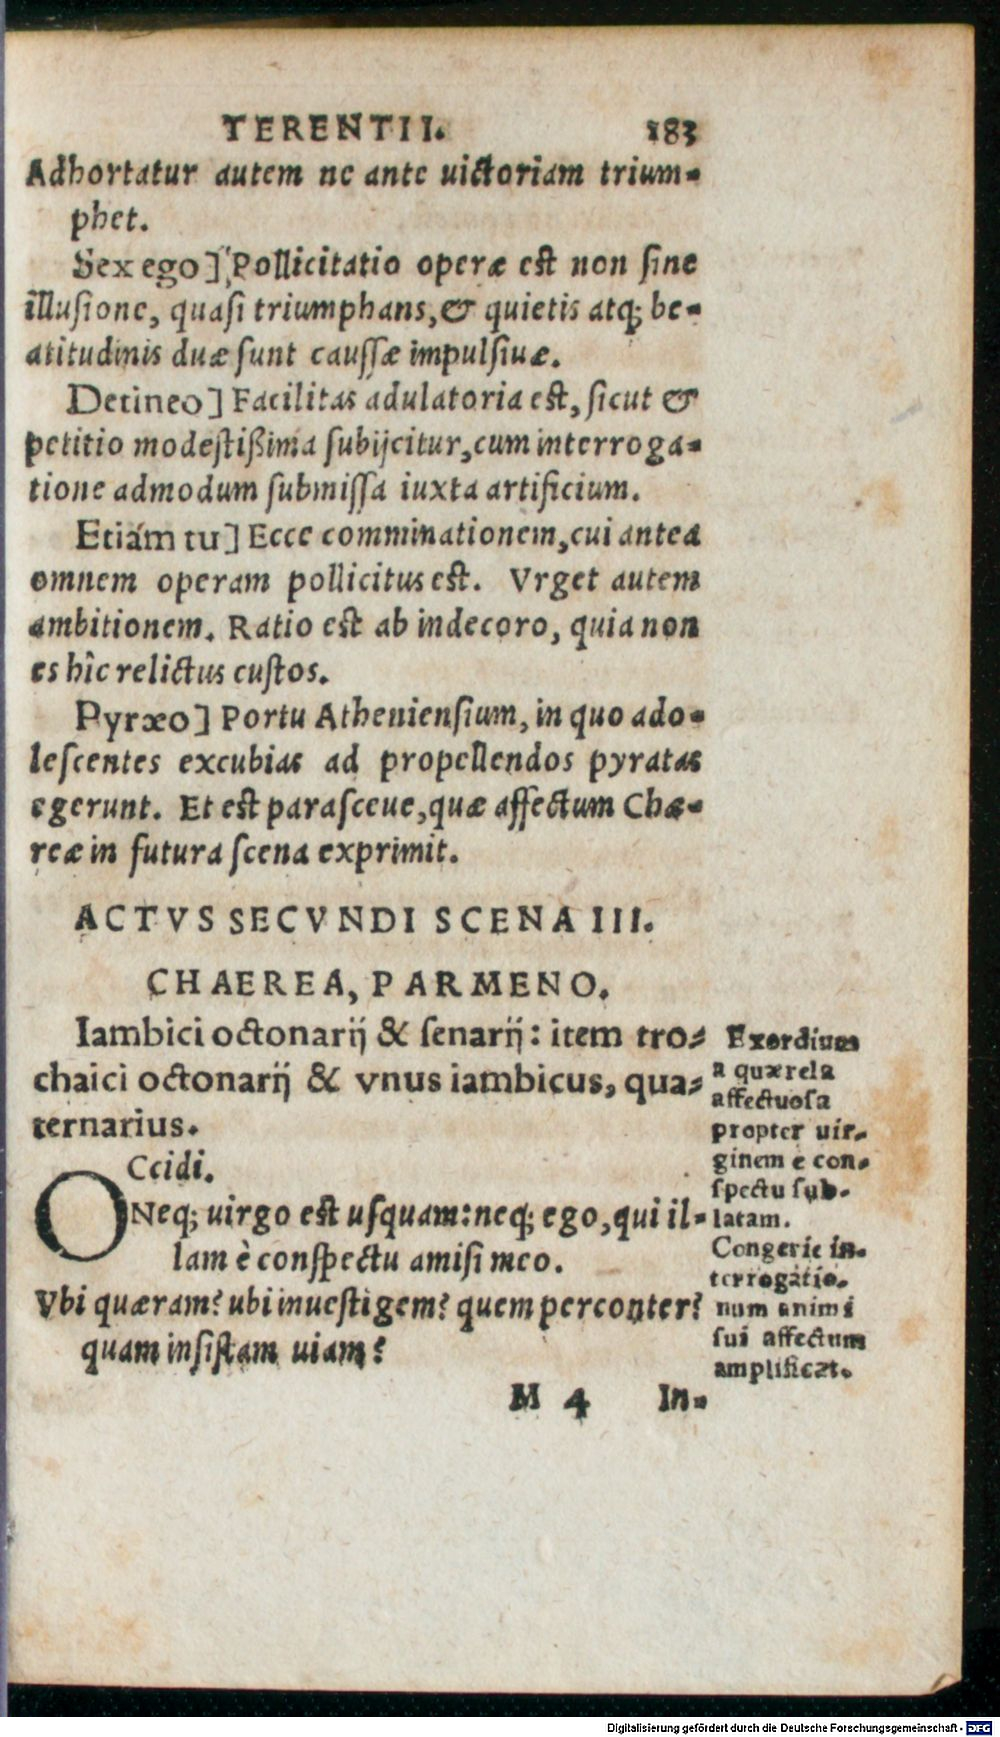 TERENTII. 183
Adhortatur autem ne ante uictoriam trium-
phet.
Sex ego] Pollicitatio operæ est non sine
illusione, quasi triumphans, & quietis atq; be-
atitudinis duæ sunt caussæ impulsiuæ.
Detineo] Facilitas adulatoria est, sicut &
petitio modestißima subijcitur, cum interroga-
tione admodum submissa iuxta artificium.
Etiám tu] Ecce comminationem, cui antea
omnem operam pollicitus est. Vrget autem
ambitionem. Ratio est ab indecoro, quia non
es hîc relictus custos.
Pyræo] Portu Atheniensium, in quo ado-
lescentes excubias ad propellendos pyratas
egerunt. Et est parasceue, quæ affectum Chæ-
reæ in futura scena exprimit.
ACTVS SECVNDI SCENA III.
CHAEREA, PARMENO.
Iambici octonarij & senarij: item tro-
chaici octonarij & vnus iambicus, qua-
ternarius.
OCcidi.
Neq; uirgo est usquam: neq; ego, qui il-
lam è conspectu amisi meo.
Vbi quæram? ubi inuestigem? quem perconter?
quam insistam uiam?
Exordium
a quærela
affectuosa
propter uir-
ginem e con-
spectu sub-
latam.
Congerie in-
terrogatio-
num animi
sui affectum
amplificat.
M 4 In-
Digitalisierung gefördert durch die Deutsche Forschungsgemeinschaft - DFG